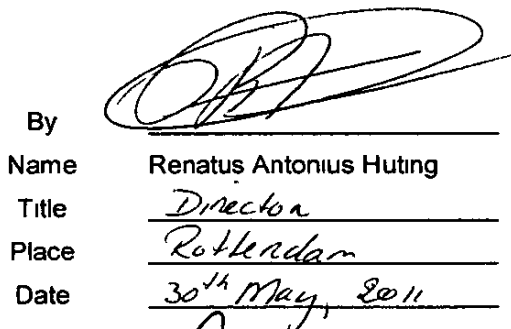 By
Name Renatus Antonius Huting
Title Director
Place Rotterdam
Date 30th May, 2011